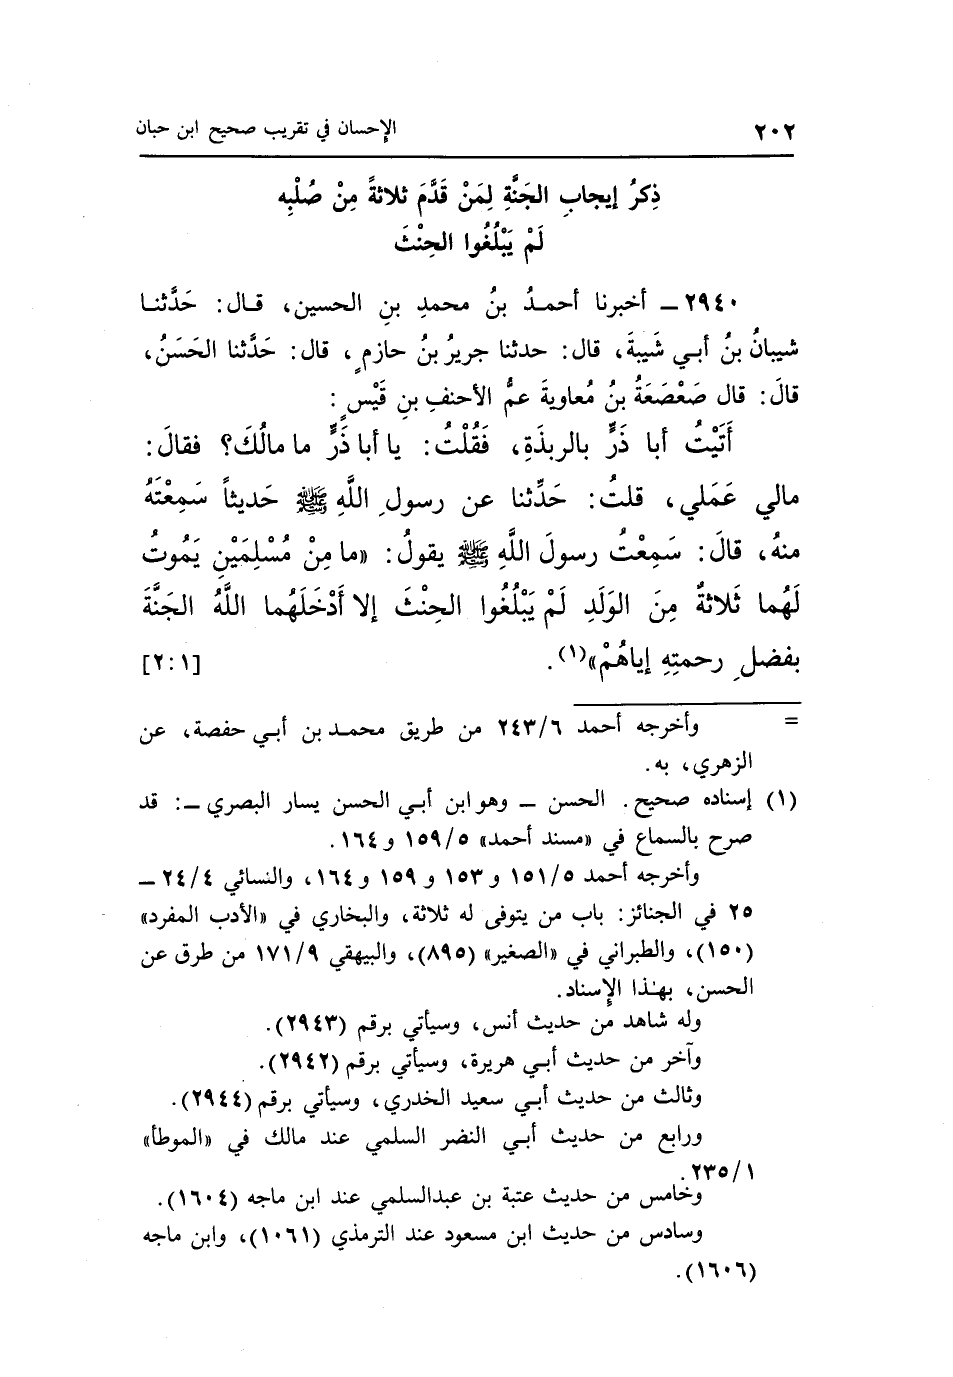 ٢٠٢ الإحسان في تقريب صحيح ابن حبان
ذِكرُ إيجابِ الجَنَّةِ لِمَنْ قَدَّمَ ثلاثةً مِنْ صُلْبِه
لَمْ يَبْلُغُوا الحِنْثَ
٢٩٤٠ ـ أخبرنا أحمدُ بنُ محمدِ بنِ الحسين، قال: حَدَّثنا
شيبانُ بنُ أبي شَيبةَ، قال: حدثنا جريرُ بنُ حازمٍ، قال: حَدَّثنا الحَسَنُ،
قالَ: قال صَعْصَعَةُ بنُ مُعاويةَ عمُّ الأحنفِ بنِ قَيْسٍ:
أَتَيْتُ أبا ذَرٍّ بالربذَةِ، فَقُلْتُ: يا أبا ذَرٍّ ما مالُكَ؟ فقالَ:
مالي عَمَلي، قلتُ: حَدِّثنا عن رسولِ اللَّهِ ﷺ حَديثاً سَمِعْتَهُ
منهُ، قالَ: سَمِعْتُ رسولَ اللَّهِ ﷺ يقولُ: «ما مِنْ مُسْلِمَيْنِ يَمُوتُ
لَهُما ثَلاثةٌ مِنَ الوَلَدِ لَمْ يَبْلُغُوا الحِنْثَ إلا أَدْخَلَهُما اللَّهُ الجَنَّةَ
بفضلِ رحمتِهِ إياهُمْ»(١). [٢:١]
= وأخرجه أحمد ٢٤٣/٦ من طريق محمد بن أبي حفصة، عن
الزهري، به.
(١) إسناده صحيح. الحسن ـ وهو ابن أبي الحسن يسار البصري ـ: قد
صرح بالسماع في «مسند أحمد» ١٥٩/٥ و ١٦٤.
وأخرجه أحمد ١٥١/٥ و ١٥٣ و ١٥٩ و ١٦٤، والنسائي ٢٤/٤ ـ
٢٥ في الجنائز: باب من يتوفى له ثلاثة، والبخاري في «الأدب المفرد»
(١٥٠)، والطبراني في «الصغير» (٨٩٥)، والبيهقي ١٧١/٩ من طرق عن
الحسن، بهذا الإسناد.
وله شاهد من حديث أنس، وسيأتي برقم (٢٩٤٣).
وآخر من حديث أبي هريرة، وسيأتي برقم (٢٩٤٢).
وثالث من حديث أبي سعيد الخدري، وسيأتي برقم (٢٩٤٤).
ورابع من حديث أبي النضر السلمي عند مالك في «الموطأ»
٢٣٥/١.
وخامس من حديث عتبة بن عبدالسلمي عند ابن ماجه (١٦٠٤).
وسادس من حديث ابن مسعود عند الترمذي (١٠٦١)، وابن ماجه
(١٦٠٦).